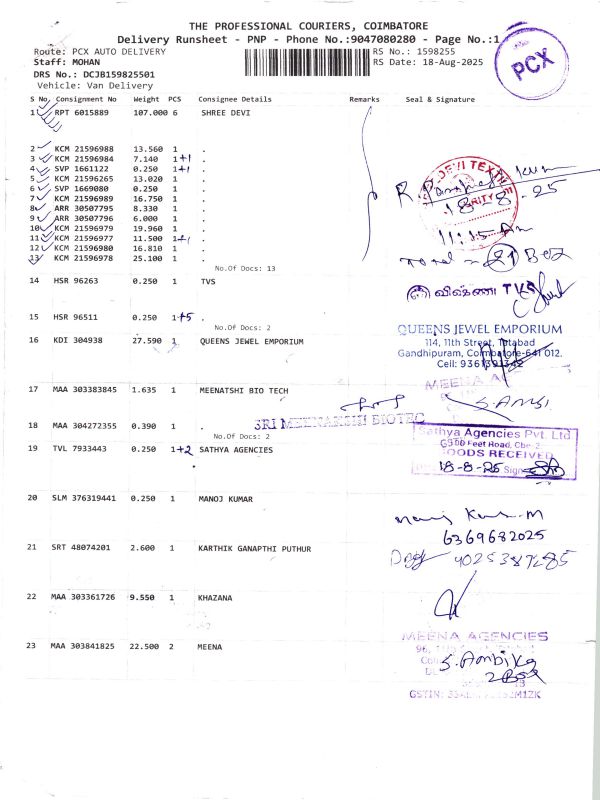 THE PROFESSIONAL COURIERS, COIMBATORE
Delivery Runsheet - PNP - Phone No.:9047080280 - Page No.:1
Route: PCX AUTO DELIVERY
RS No.: 1598255
Staff: MOHAN
RS Date: 18-Aug-2025
DRS No.: DCJB159825501
Vehicle: Van Delivery
PCX
S No Consignment No Weight PCS Consignee Details Remarks Seal & Signature
1 RPT 6015889 107.000 6 SHREE DEVI
2 KCM 21596988 13.560 1 .
3 KCM 21596984 7.140 1+1 .
4 SVP 1661122 0.250 1+1 .
5 KCM 21596265 13.020 1 .
6 SVP 1669080 0.250 1 .
7 KCM 21596989 16.750 1 .
8 ARR 30507795 8.330 1 .
9 ARR 30507796 6.000 1 .
10 KCM 21596979 19.960 1 .
11 KCM 21596977 11.500 1+1 .
12 KCM 21596980 16.810 1 .
13 KCM 21596978 25.100 1 .
DEVI TEXTILE
18-8-25
11:15 Am
Total = 21 Box
No.Of Docs: 13
14 HSR 96263 0.250 1 TVS
விஷ்ணு TVS
15 HSR 96511 0.250 1+5 .
No.Of Docs: 2
16 KDI 304938 27.590 1 QUEENS JEWEL EMPORIUM
QUEENS JEWEL EMPORIUM
114, 11th Street, Tatabad
Gandhipuram, Coimbatore-641 012.
Cell:
17 MAA 303383845 1.635 1 MEENATSHI BIO TECH
MEENA
18 MAA 304272355 0.390 1 .
SRI MEENAKSHI BIOTEC
No.Of Docs: 2
19 TVL 7933443 0.250 1+2 SATHYA AGENCIES
Sathya Agencies Pvt. Ltd
Feet Road, Cbe-2
GOODS RECEIVED
18-8-25 Sign
20 SLM 376319441 0.250 1 MANOJ KUMAR
Manoj Kumar.M
6369682025
21 SRT 48074201 2.600 1 KARTHIK GANAPTHI PUTHUR
22 MAA 303361726 9.550 1 KHAZANA
23 MAA 303841825 22.500 2 MEENA
MEENA AGENCIES
S.Ambika
2 Box
GSTIN: